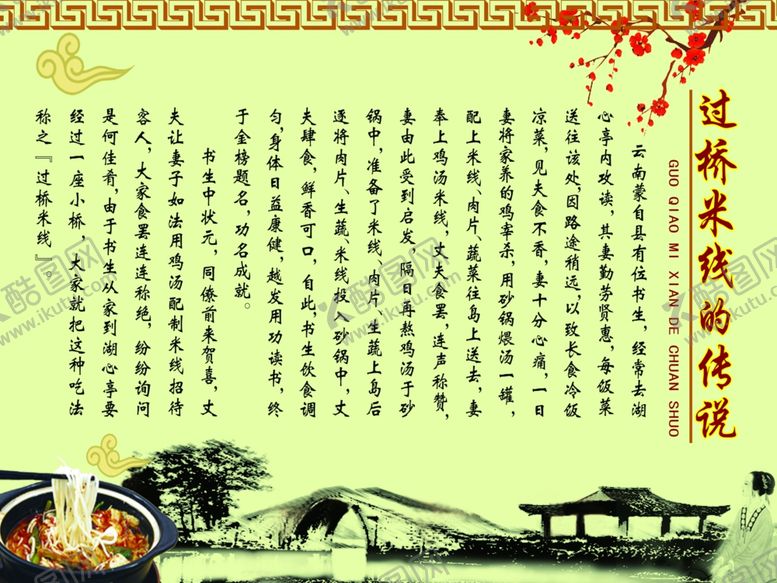 过桥米线的传说
GUO QIAO MI XIAN DE CHUAN SHUO
云南蒙自县有位书生，经常去湖
心亭内攻读，其妻勤劳贤惠，每饭菜
送往该处，因路途稍远，以致长食冷饭
凉菜，见夫食不香，妻十分心痛，一日
妻将家养的鸡宰杀，用砂锅煨汤一罐，
配上米线、肉片、蔬菜往岛上送去，妻
奉上鸡汤米线，丈夫食罢，连声称赞，
妻由此受到启发，隔日再熬鸡汤于砂
锅中，准备了米线、肉片、生蔬上岛后
逐将肉片、生蔬、米线投入砂锅中，丈
夫肆食，鲜香可口，自此，书生饮食调
匀，身体日益康健，越发用功读书，终
于金榜题名，功名成就。
书生中状元，同僚前来贺喜，丈
夫让妻子如法用鸡汤配制米线招待
客人，大家食罢连连称绝，纷纷询问
是何佳肴，由于书生从家到湖心亭要
经过一座小桥，大家就把这种吃法
称之『过桥米线』。
酷图网
www.ikutu.com